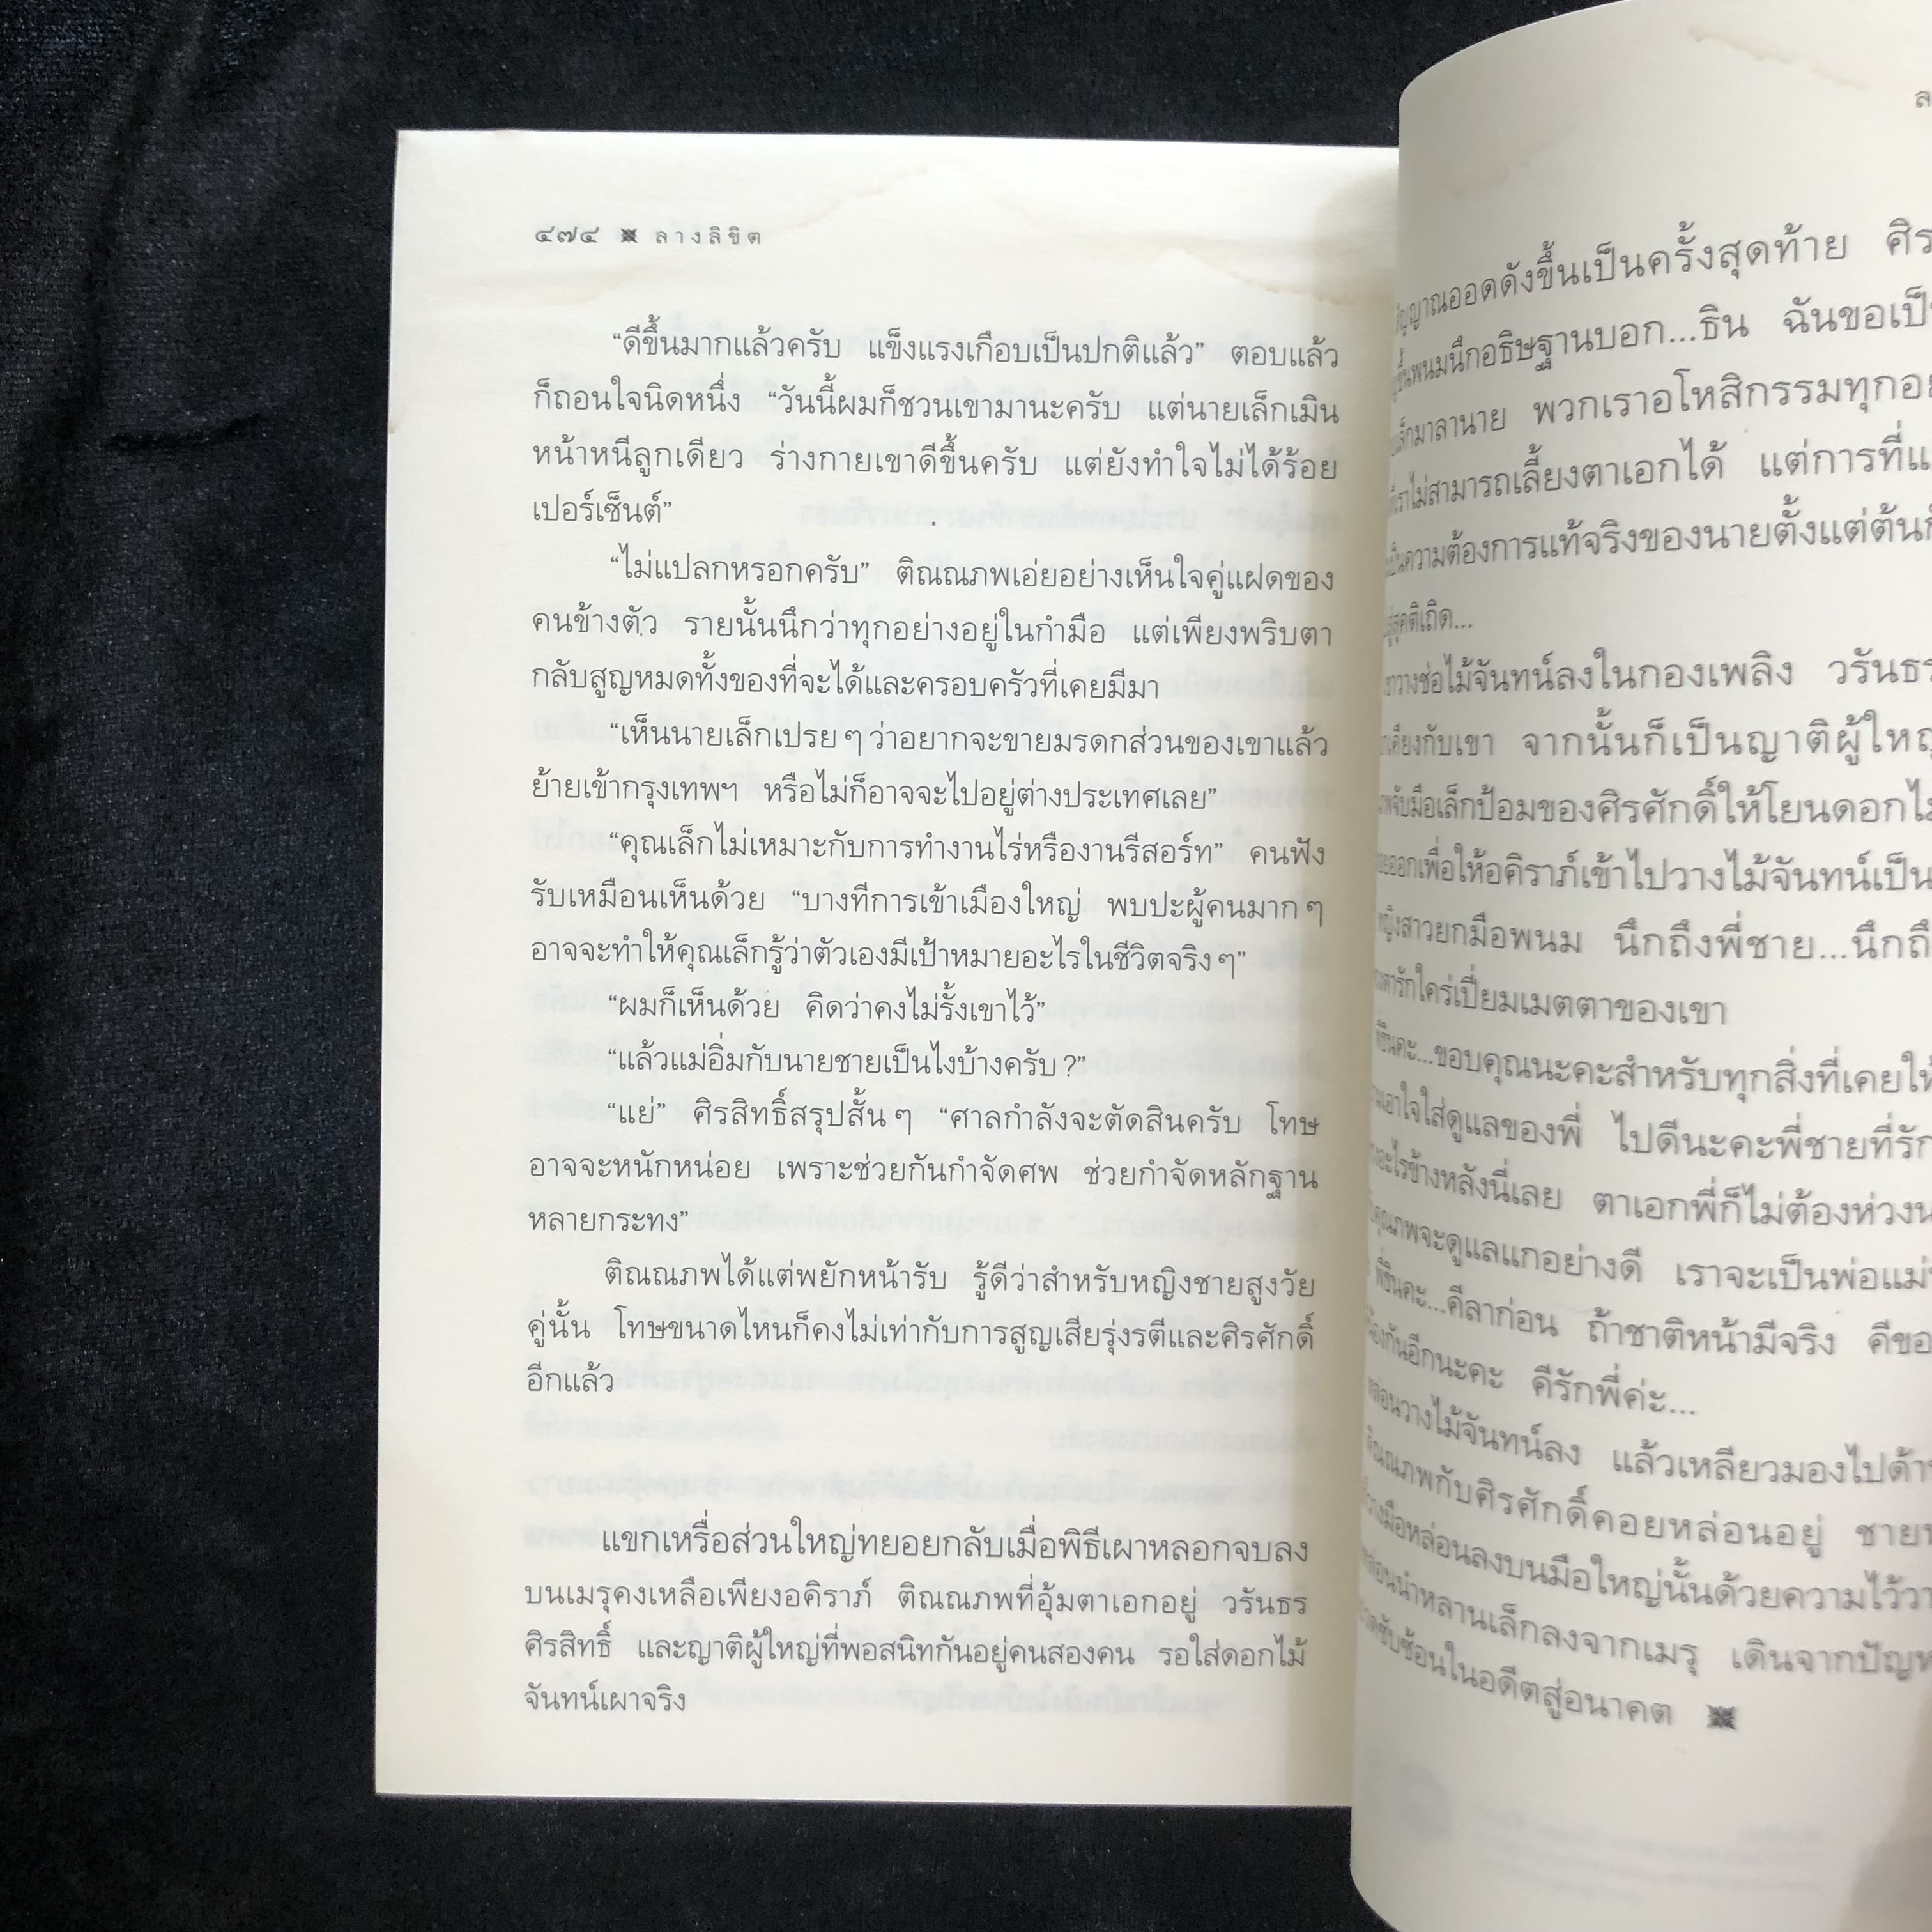 ๔๗๔ ลางลิขิต
“ดีขึ้นมากแล้วครับ แข็งแรงเกือบเป็นปกติแล้ว” ตอบแล้ว
ก็ถอนใจนิดหนึ่ง “วันนี้ผมก็ชวนเขามานะครับ แต่นายเล็กเมิน
หน้าหนีลูกเดียว ร่างกายเขาดีขึ้นครับ แต่ยังทำใจไม่ได้ร้อย
เปอร์เซ็นต์”
“ไม่แปลกหรอกครับ” ติณณภพเอ่ยอย่างเห็นใจคู่แฝดของ
คนข้างตัว รายนั้นนึกว่าทุกอย่างอยู่ในกำมือ แต่เพียงพริบตา
กลับสูญหมดทั้งของที่จะได้และครอบครัวที่เคยมีมา
“เห็นนายเล็กเปรย ๆ ว่าอยากจะขายมรดกส่วนของเขาแล้ว
ย้ายเข้ากรุงเทพฯ หรือไม่ก็อาจจะไปอยู่ต่างประเทศเลย”
“คุณเล็กไม่เหมาะกับการทำงานไร่หรืองานรีสอร์ท” คนฟัง
รับเหมือนเห็นด้วย “บางทีการเข้าเมืองใหญ่ พบปะผู้คนมาก ๆ
อาจจะทำให้คุณเล็กรู้ว่าตัวเองมีเป้าหมายอะไรในชีวิตจริง ๆ”
“ผมก็เห็นด้วย คิดว่าคงไม่รั้งเขาไว้”
“แล้วแม่อิ่มกับนายชายเป็นไงบ้างครับ ?”
“แย่” ศิรสิทธิ์สรุปสั้น ๆ “ศาลกำลังจะตัดสินครับ โทษ
อาจจะหนักหน่อย เพราะช่วยกันกำจัดศพ ช่วยกำจัดหลักฐาน
หลายกระทง”
ติณณภพได้แต่พยักหน้ารับ รู้ดีว่าสำหรับหญิงชายสูงวัย
คู่นั้น โทษขนาดไหนก็คงไม่เท่ากับการสูญเสียรุ่งรตีและศิรศักดิ์
อีกแล้ว
แขกเหรื่อส่วนใหญ่ทยอยกลับเมื่อพิธีเผาหลอกจบลง
บนเมรุคงเหลือเพียงอคิราภ์ ติณณภพที่อุ้มตาเอกอยู่ วรันธร
ศิรสิทธิ์ และญาติผู้ใหญ่ที่พอสนิทกันอยู่คนสองคน รอใส่ดอกไม้
จันทน์เผาจริง
ออดดังขึ้นเป็นครั้งสุดท้าย
พนมนึกอธิษฐานบอก...ธิน ฉันขอ
มาลานาย พวกเราอโหสิกรรม
ไม่สามารถเลี้ยงตาเอกได้ แต่การที่
ความต้องการแท้จริงของนายตั้งแต่ต้น
สุคติเถิด...
วางช่อไม้จันทน์ลงในกองเพลิง
กับเขา จากนั้นก็เป็นญาติ
จับมือเล็กป้อมของศิรศักดิ์ให้โยน
ออกเพื่อให้อคิราภ์เข้าไปวางไม้จันทน์
หญิงสาวยกมือพนม นึกถึงพี่ชาย...
รักใคร่เปี่ยมเมตตาของเขา
...ขอบคุณนะคะสำหรับทุกสิ่งที่เคย
เอาใจใส่ดูแลของพี่ ไปดีนะคะพี่ชายที่รัก
อะไรข้างหลังนี่เลย ตาเอกพี่ก็ไม่ต้องห่วง
คุณภพจะดูแลแกอย่างดี เราจะเป็นพ่อแม่
พี่ธินคะ...คีลาก่อน ถ้าชาติหน้ามีจริง
กันอีกนะคะ คีรักพี่ค่ะ...
วางไม้จันทน์ลง แล้วเหลียวมองไป
ติณณภพกับศิรศักดิ์คอยหล่อนอยู่
วางมือหล่อนลงบนมือใหญ่นั้นด้วยความ
หล่อนนำหลานเล็กลงจากเมรุ เดินจาก
ซับซ้อนในอดีตสู่อนาคต